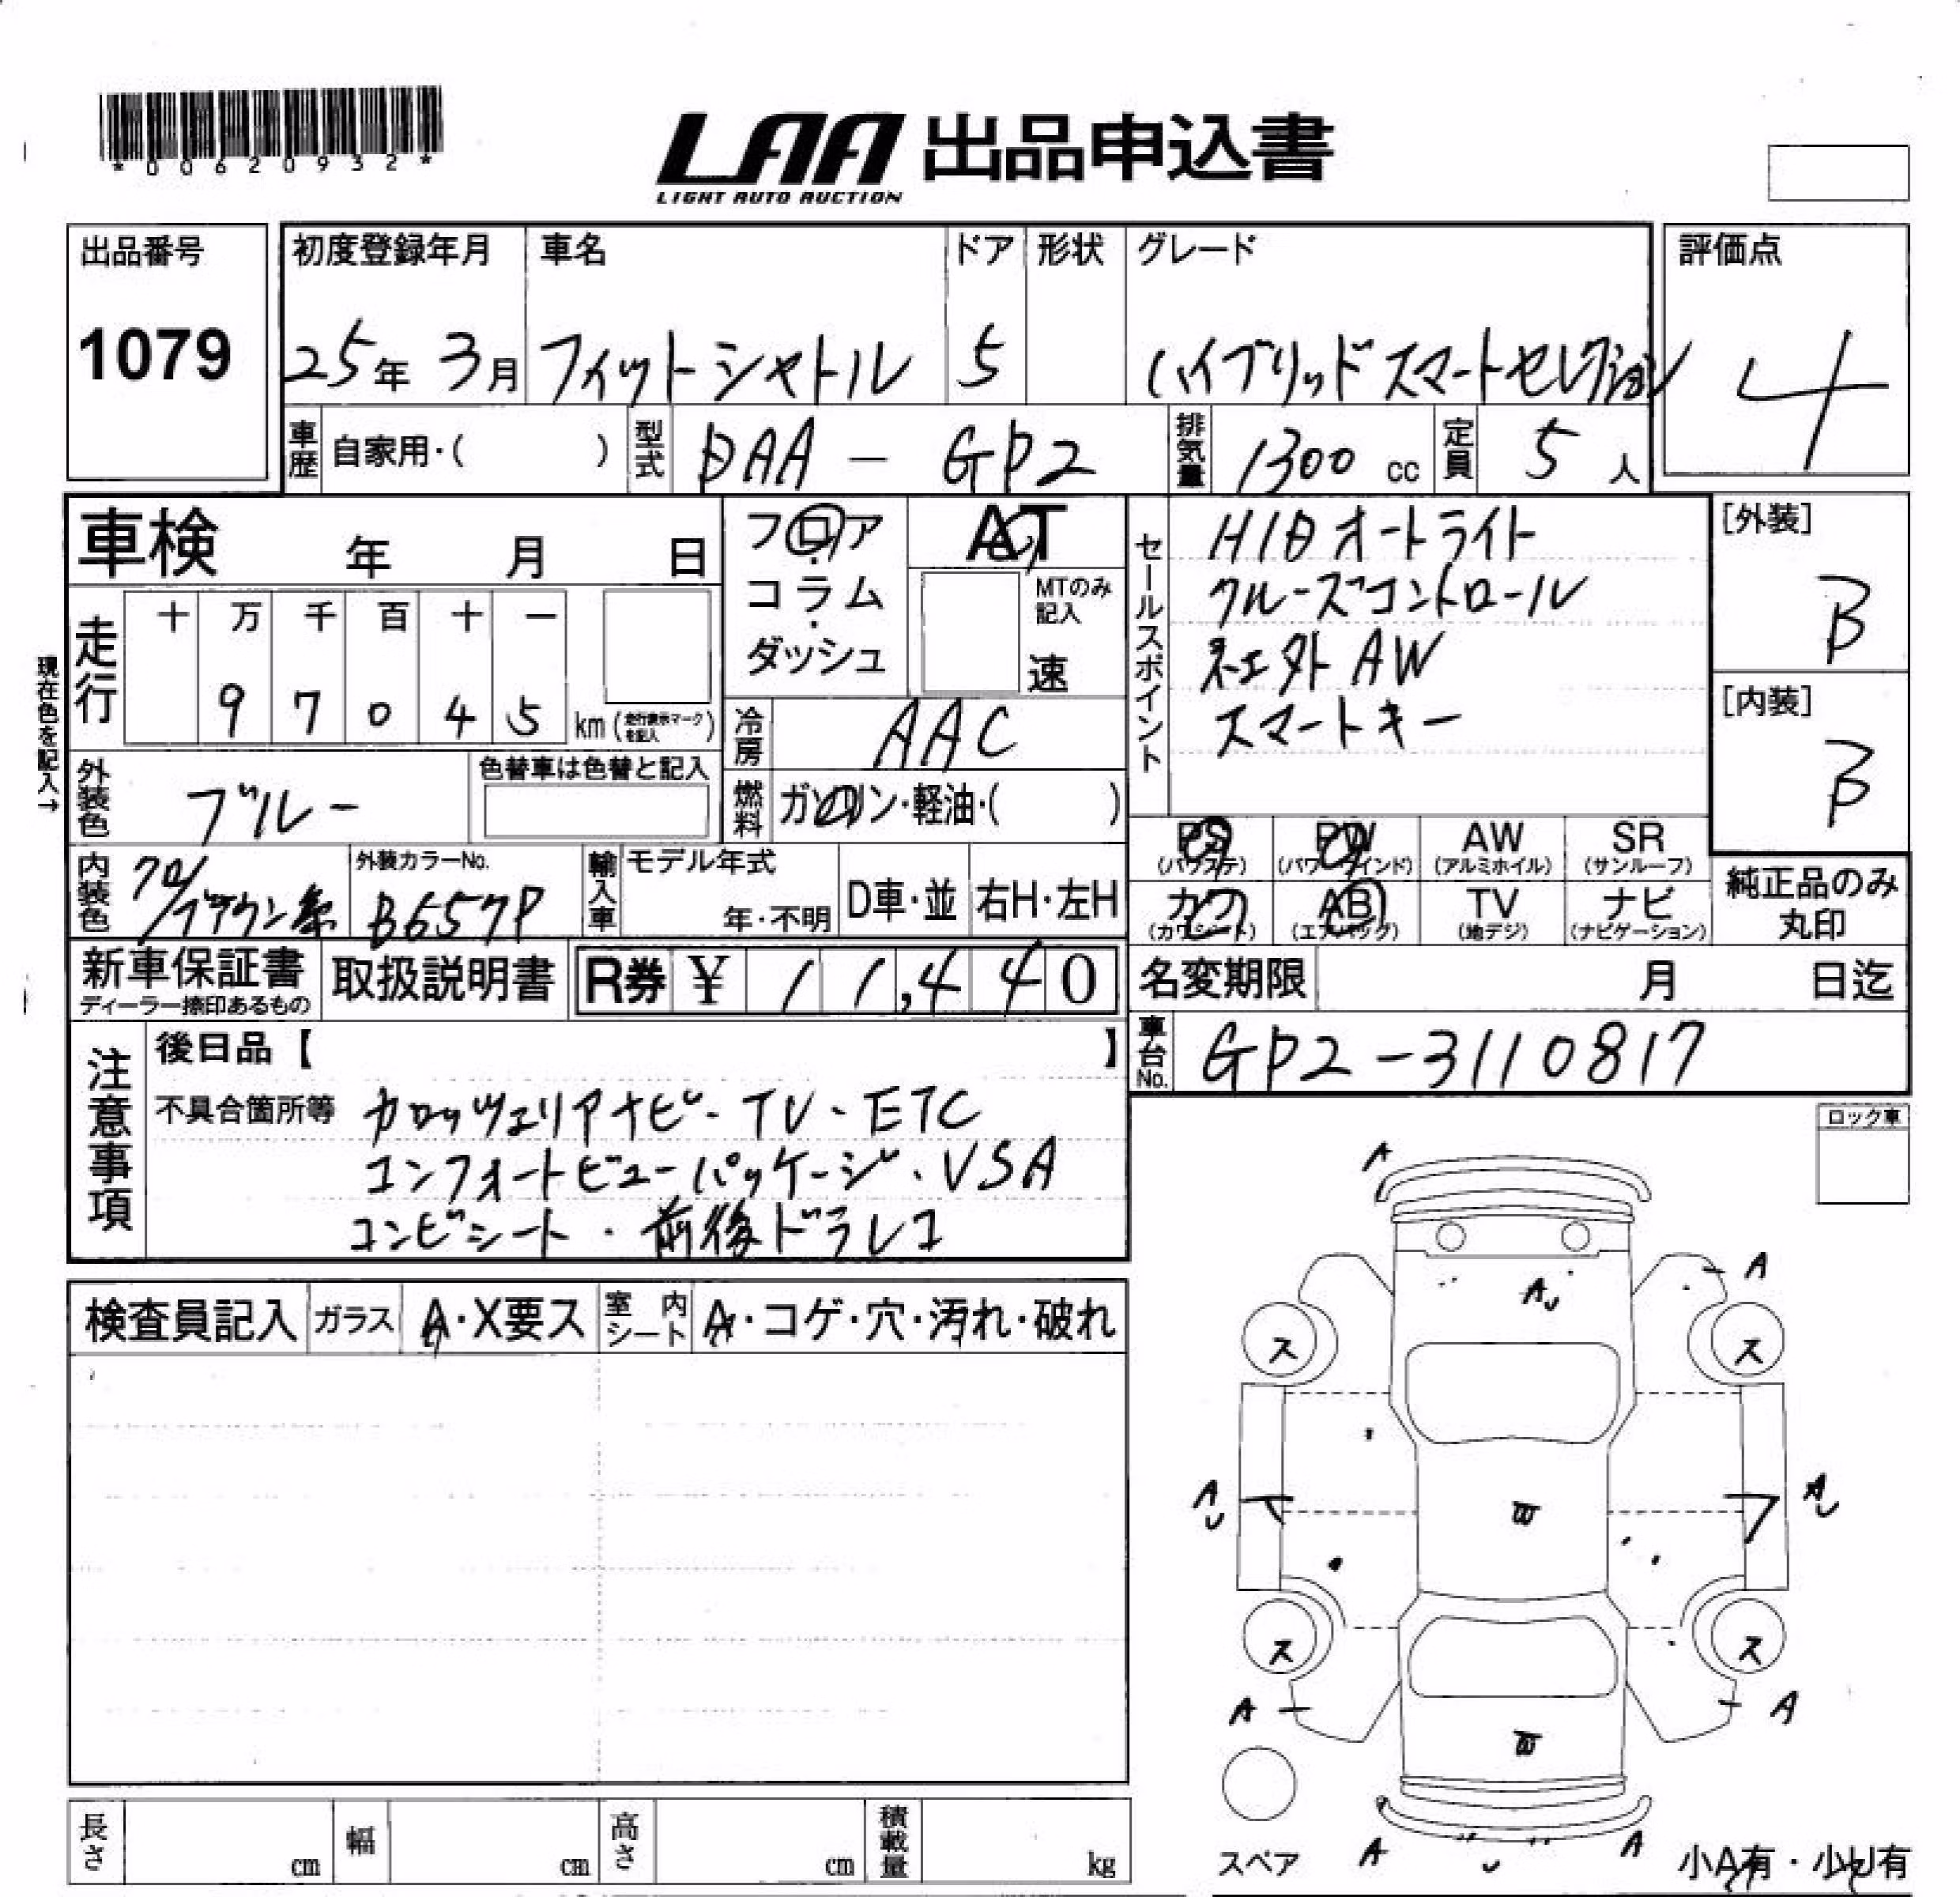 *00620932*
LAA 出品申込書
LIGHT AUTO AUCTION
出品番号
1079
初度登録年月 車名 ドア 形状 グレード 評価点
25年 3月 フィットシャトル 5 ハイブリッドスマートセレクション 4
車歴 自家用・( ) 型式 DAA - GP2 排気量 1300 cc 定員 5 人
車検 年 月 日
フロア・コラム・ダッシュ
AT
MTのみ記入
速
セールスポイント
HIDオートライト
クルーズコントロール
社外AW
スマートキー
[外装]
B
[内装]
B
現在色を記入→
走行 十 万 千 百 十 一
9 7 0 4 5 km (走行表示マークを記入)
冷房 AAC
外装色 ブルー 色替車は色替と記入
燃料 ガソリン・軽油・( )
PS (パワステ) PW (パワーウインド) AW (アルミホイル) SR (サンルーフ)
カワ (カワシート) AB (エアバッグ) TV (地デジ) ナビ (ナビゲーション)
純正品のみ丸印
内装色 クロ/ブラウン系 外装カラーNo. B657P 輸入車 モデル年式 年・不明 D車・並 右H・左H
新車保証書 ディーラー捺印あるもの 取扱説明書 R券 ¥ 11,440
名変期限 月 日迄
車台No. GP2-3110817
注意事項
後日品【 】
不具合箇所等 カロッツェリアナビ・TV・ETC
コンフォートビューパッケージ・VSA
コンビシート・前後ドラレコ
ロック車
検査員記入 ガラス A・X要ス 室内シート A・コゲ・穴・汚れ・破れ
A
A
AU
ス ス
AU AU
W
ス ス
A A
W
スペア A U A
小A有・小U有
長さ cm 幅 cm 高さ cm 積載量 kg